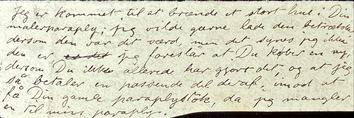 Jeg er kommet til at brænde et stort hul i Din
malerparaply; jeg vilde gerne lade den betrække
dersom den var det værd, men det synes jeg ikke
den er jeg foreslår at Du køber en ny,
dersom Du ikke allerede har gjort det, og at jeg
så betaler en passende del deraf, imod at
få Din gamle paraplystok, da jeg mangler
en til min paraply.